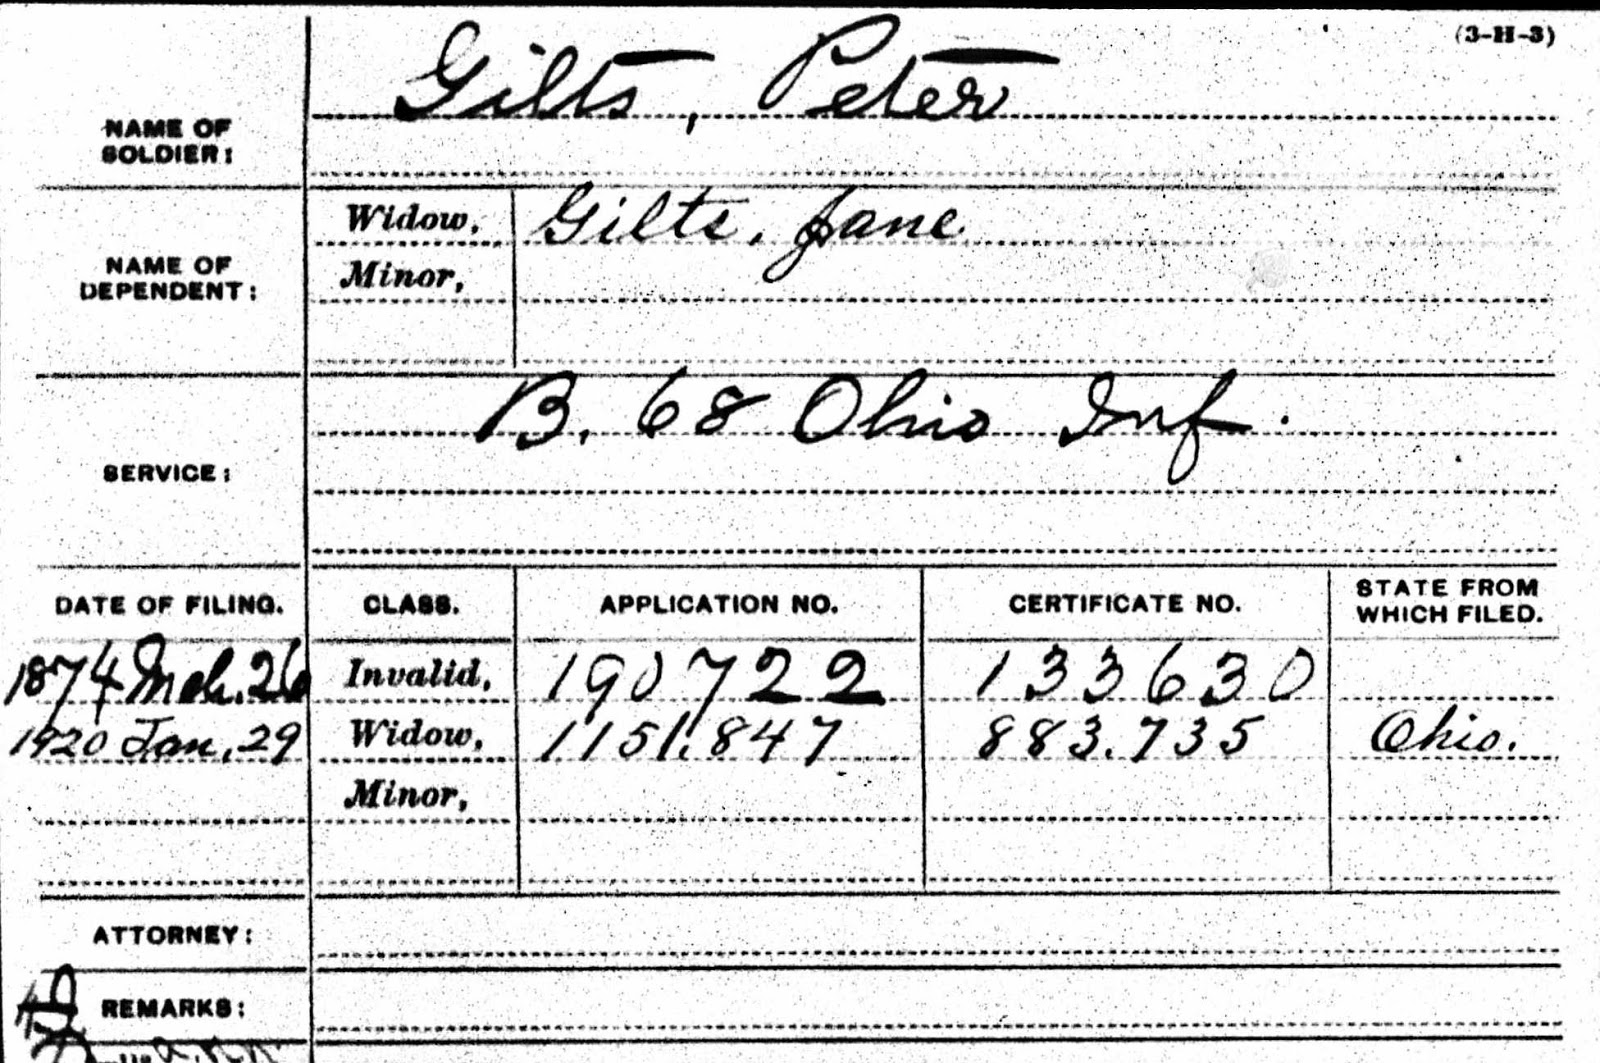 (3-H-3)
NAME OF SOLDIER: Gilts, Peter
NAME OF DEPENDENT: Widow, Gilts, Jane
Minor,
SERVICE: B. 68 Ohio Inf.
DATE OF FILING. CLASS. APPLICATION NO. CERTIFICATE NO. STATE FROM WHICH FILED.
1874 Mch. 26 Invalid, 190722 133630
1920 Jan. 29 Widow, 1151.847 883.735 Ohio.
Minor,
ATTORNEY:
REMARKS: